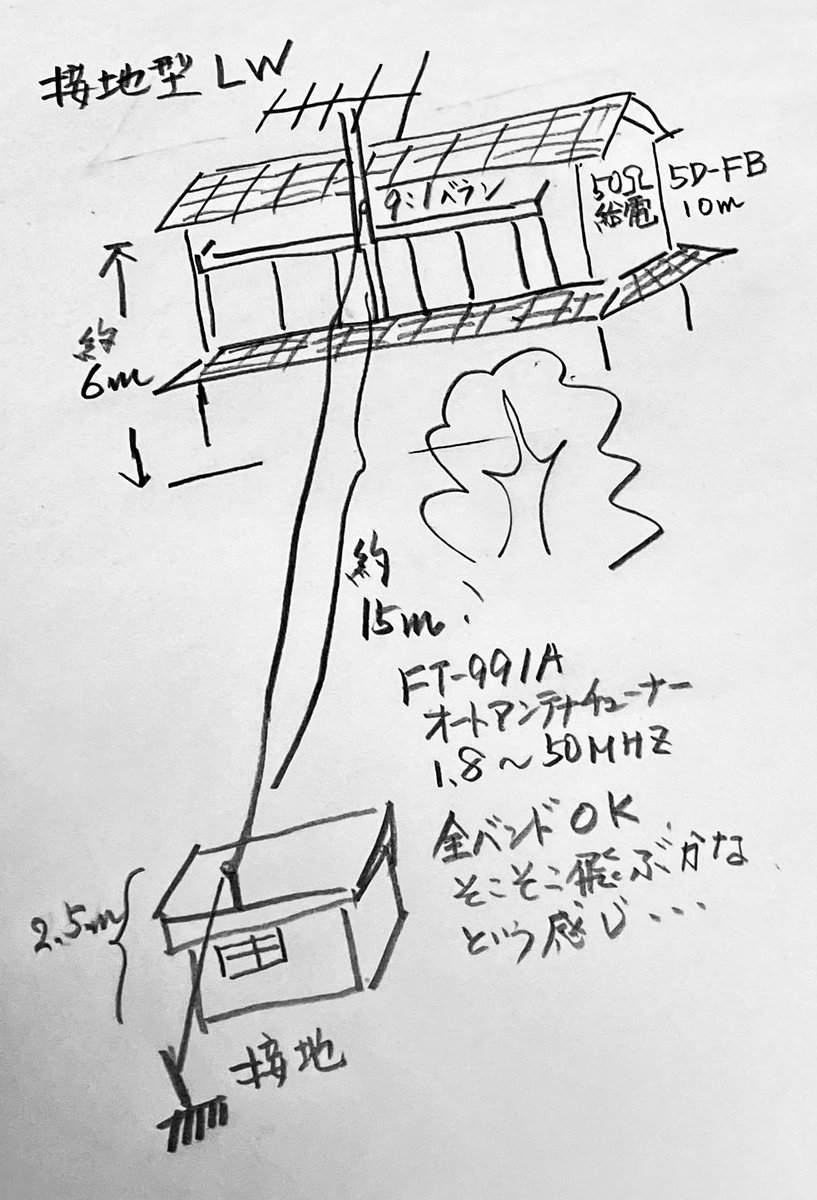 接地型 LW
9:1バラン
50Ω
給電
5D-FB
10m
約
6m
約
15m
FT-991A
オートアンテナチューナー
1.8〜50MHZ
全バンドOK
そこそこ飛ぶかな
という感じ...
2.5m
接地